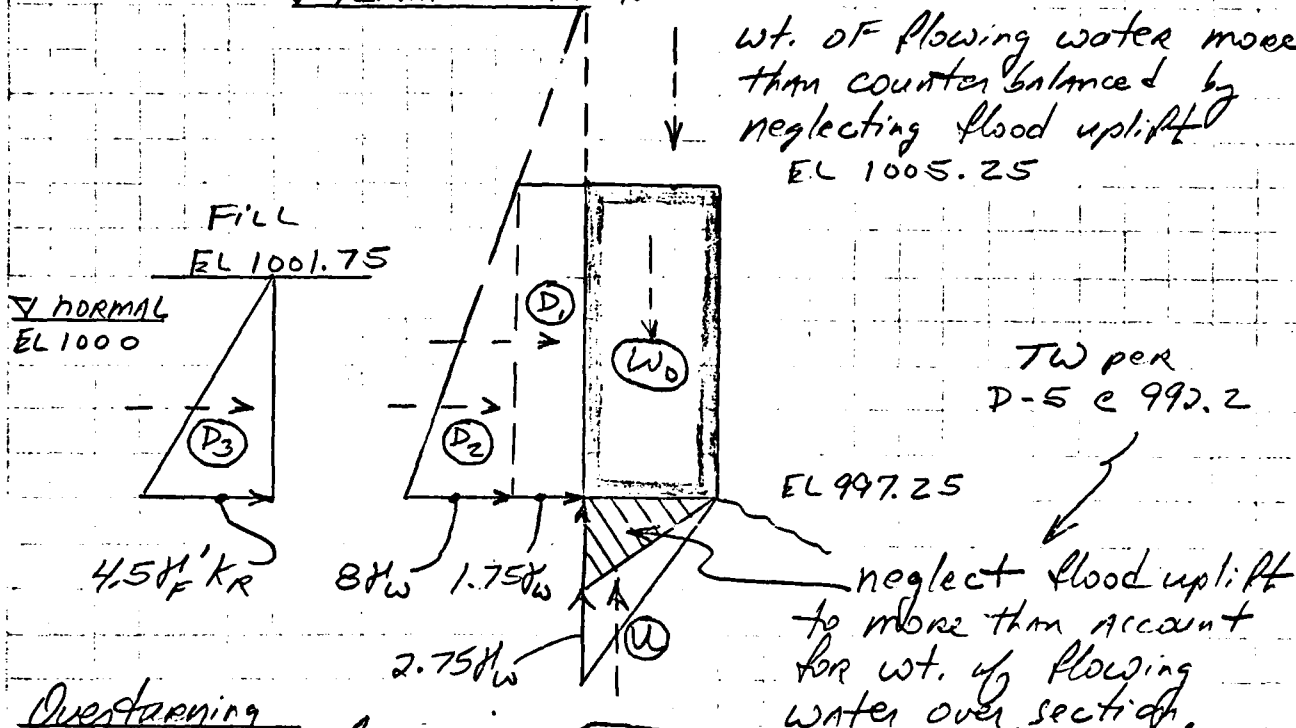 wt. of flowing water more
than counter balanced by
neglecting flood uplift
EL 1005.25
FILL
EL 1001.75
∇ NORMAL
EL 1000
D₁
W₀
TW per
D-5 @ 992.2
D₃
D₂
EL 997.25
4.5 γ'F KR
8γw
1.75γw
neglect flood uplift
to more than account
for wt. of flowing
water over section.
2.75γw
U
Overturning